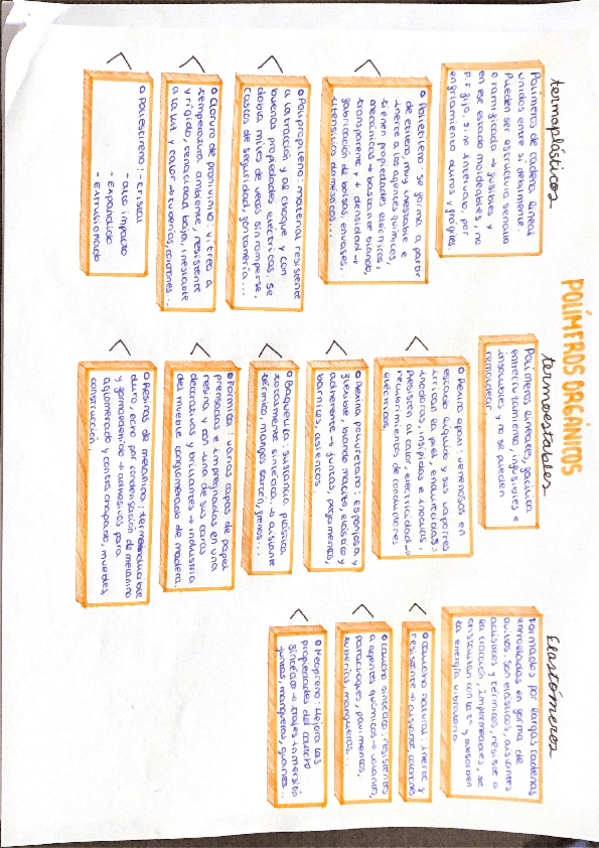 POLÍMEROS ORGÁNICOS
termoplásticos
Polímeros de cadena lineal
unidos entre sí debilmente.
Pueden ser estructura sencilla
o ramificada → fusibles y
en ese estado moldeables, no
p.f fijo, sino intervalo, por
enfriamiento duros y frágiles.
o Polietileno: se forma a partir
de etileno, muy inestable e
inerte a los agentes químicos,
tienen propiedades eléctricas,
mecánicas → bastante blando,
transparente y ↓ densidad →
fabricación de bolsas, envases,
utensilios domésticos...
o Polipropileno: material resistente
a la tracción y al choque y con
buenas propiedades eléctricas. Se
dobla miles de veces sin romperse.
cascos de seguridad, fontanería...
o Cloruro de poni vinilo: vítrea a
temperatura ambiente, resistente
y rígido, tenacidad baja, inestable
a la luz y calor → tuberías, colchones...
o Poliestireno: - cristal
- alto impacto
- expandido
- extrusionado
termoestables
Polímeros lineales, facilita
entrecruzamiento, infusibles e
insolubles y no se pueden
remoldear.
o Resina epoxi: venenosas en
estado líquido y sus vapores
irritan la piel, endurecidas:
inodoras, insípidas e inocuas,
resisten al calor, electricidad →
recubrimientos de conductores
eléctricos.
o Resina poliuretano: esponjosa y
flexible, blando macizo, elástico y
adherente → juntas, pegamentos,
barnices, asientos.
o Baquelita: sustancia plástica
totalmente sintética → aislante
térmico, mangos sartén, frenos...
o Formica: varias capas de papel
prensadas e impregnadas en una
resina y con una de sus caras
decorativas y brillantes → industria
del mueble conglomerado de madera.
o Resinas de melamina:
duro, hecho por condensación de melamina
y formaldehído → adhesivos para
aglomerado y contrachapado, muebles,
construcción.
Elastómeros
Formados por largas cadenas
enrrolladas en forma de
ovillos. Son elásticos, aislantes
acústicos y térmicos, resiste a
la tracción, impermeables, se
cristalizan con la tª y absorben
la energía vibratoria
o caucho natural: inerte y
resistente → aislante, colchones
o caucho sintético: resistentes
a agentes químicos →
parachoques, pavimentos,
tuberías, mangueras...
o Neopreno: Mejora las
propiedades del caucho
sintético → trajes inmersión
juntas, mangueras, guantes...